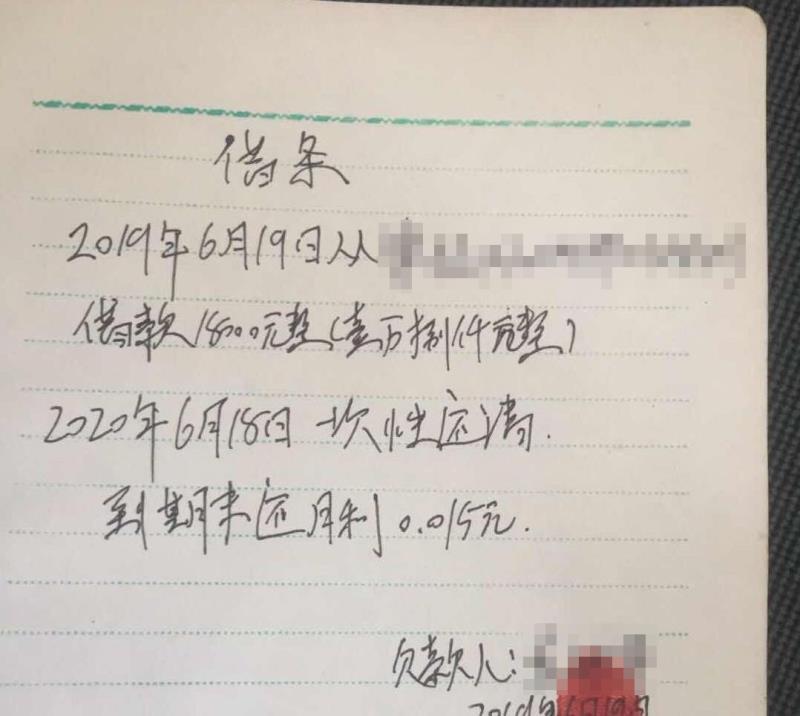 借条
2019年6月19日从
借款18000元整(壹万捌仟元整)
2020年6月18日一次性还清.
到期未还月利0.015元.
欠款人:
2019年6月19日